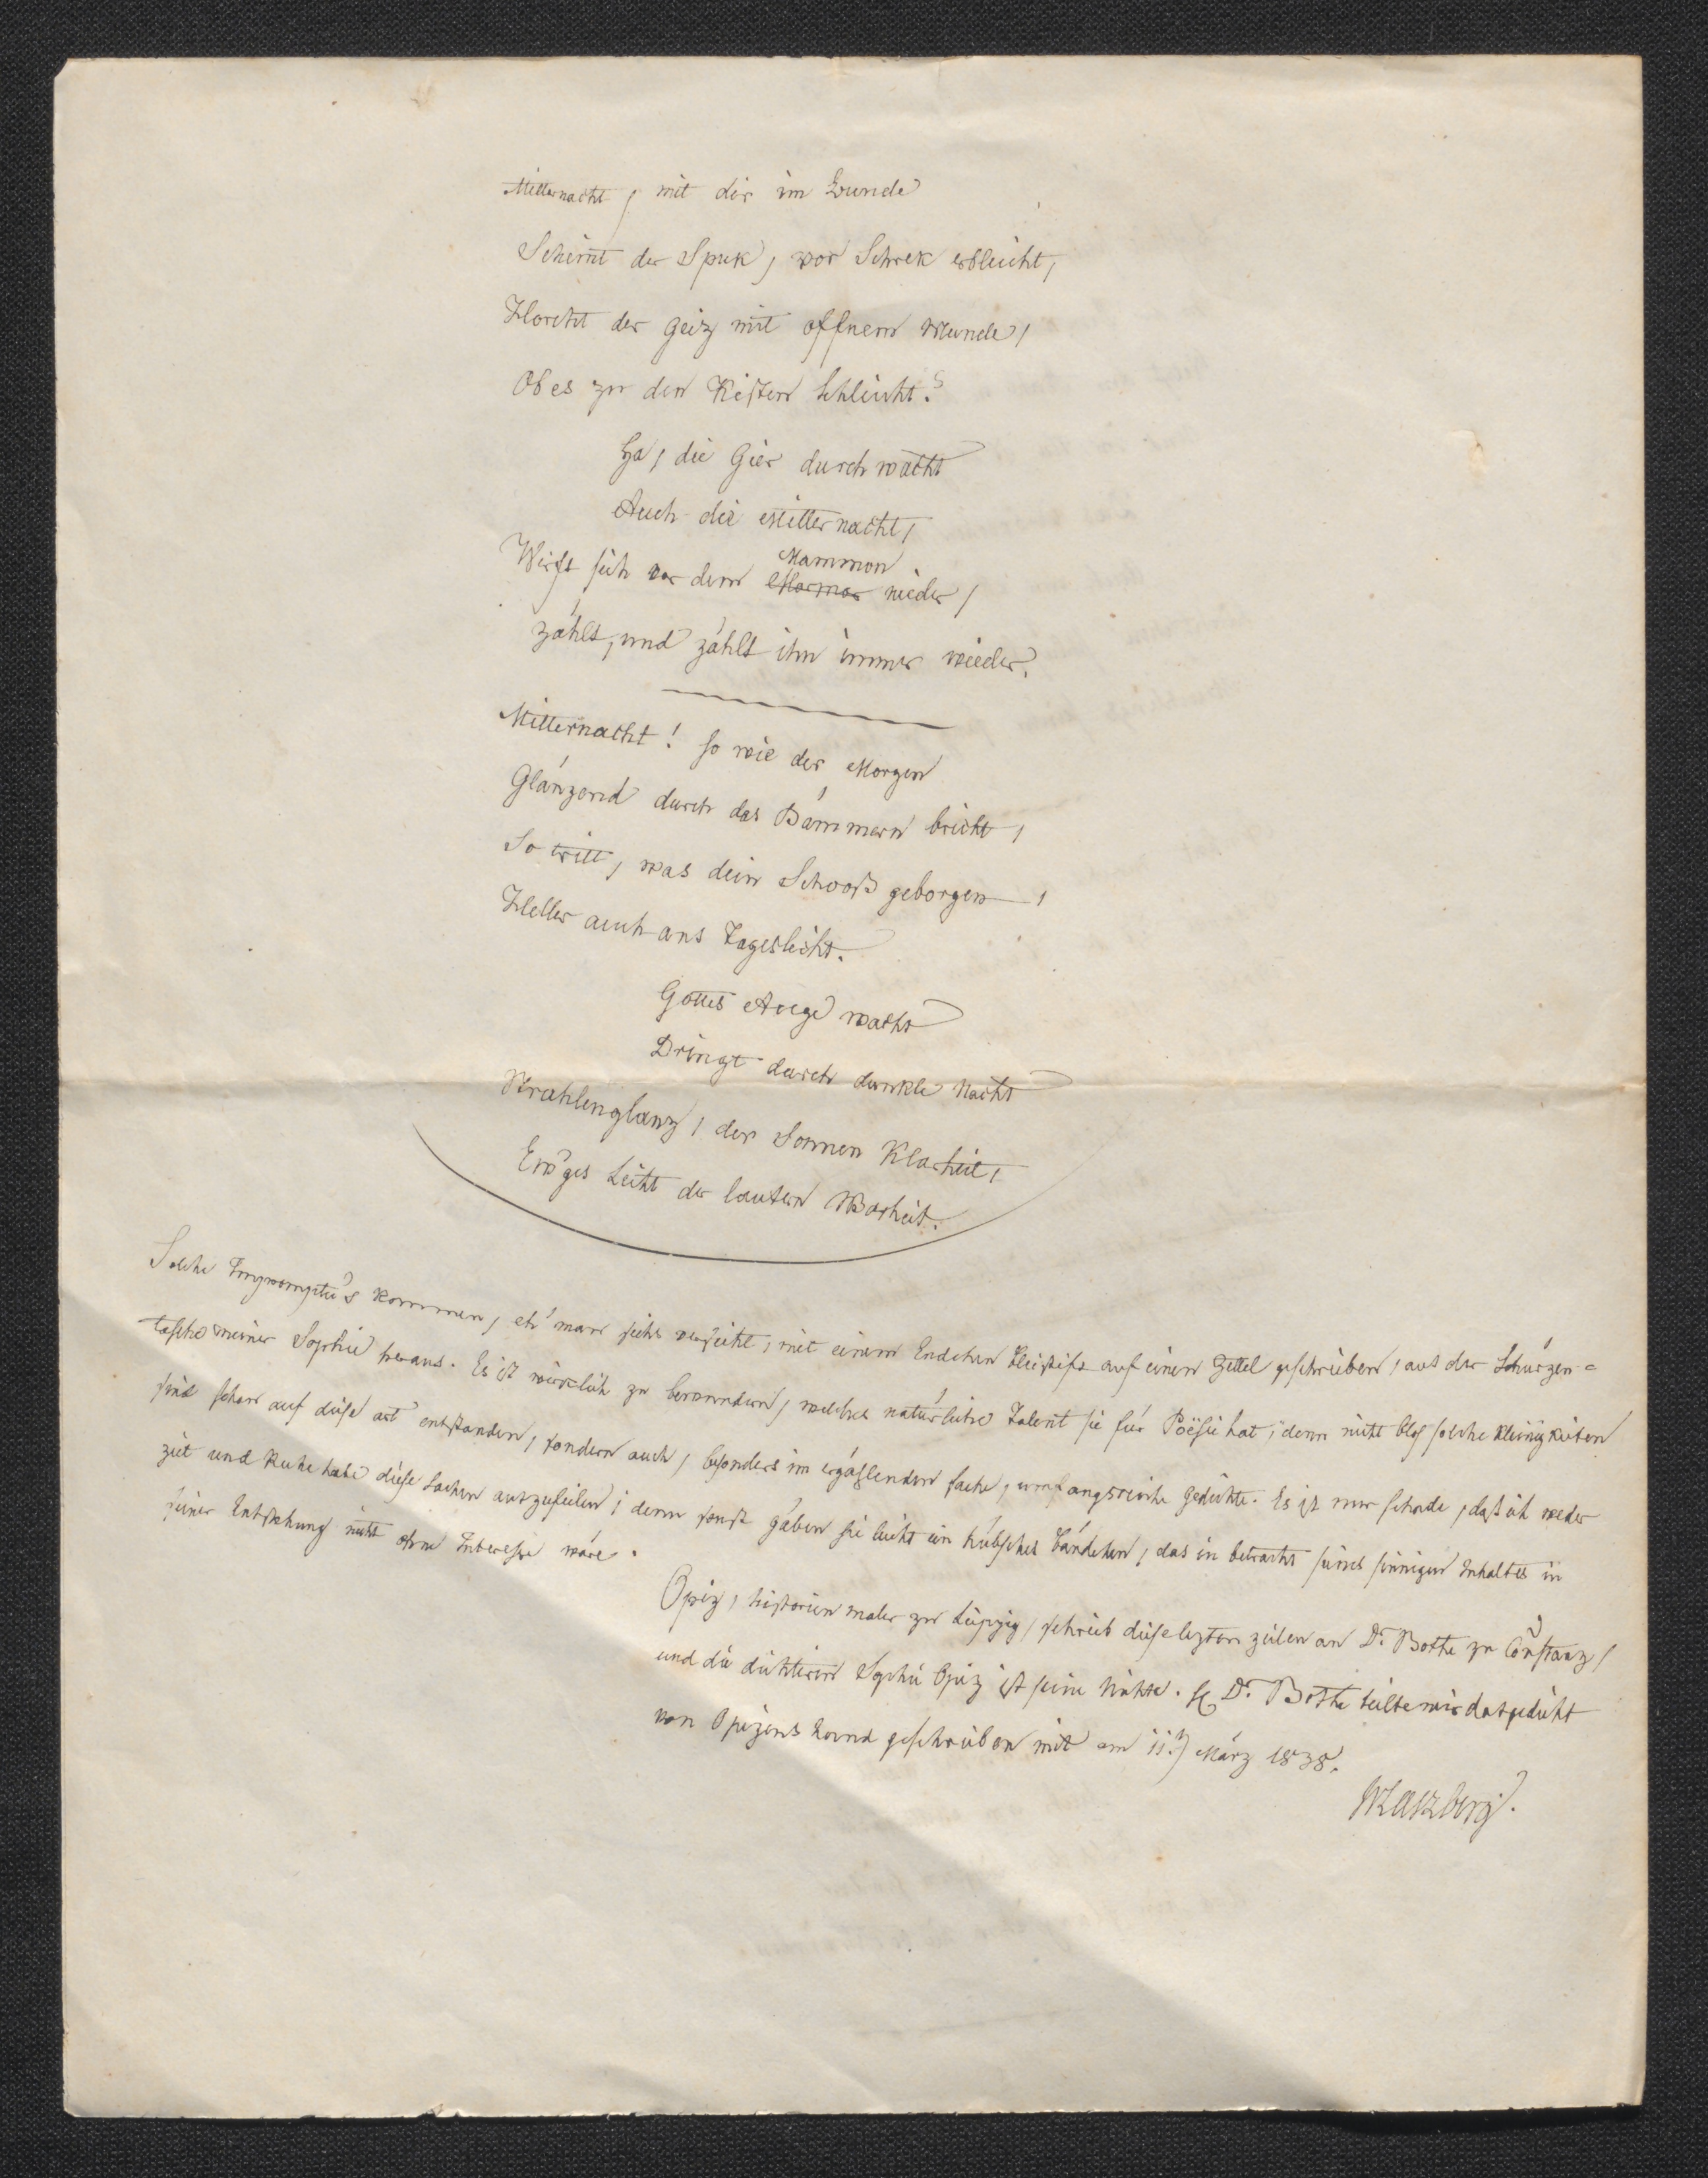 Mitternacht, mit dir im Bunde
Scheint der Spuk, vor Schrek erbleicht,
Horcht der Geiz mit offnem Munde,
Ob es zu den Kisten schleicht?
Ha, die Gier durchwacht
Auch die Mitternacht,
Mammon
Wirft sich vor dem Marmor nieder,
zählt, und zählt ihn immer wieder.
Mitternacht! so wie der Morgen
Glänzend durch das Dämmern bricht,
So tritt, was dein Schooß geborgen,
Heller auch ans Tageslicht.
Gottes Auge wacht
Dringt durch dunkle Nacht
Strahlenglanz, der Sonnen Klarheit,
Ew'ges Licht der lautern Warheit.
Solche Impromptu's kommen, eh' man sichs versieht, mit einem Endchen Bleistift auf einen Zettel geschrieben, aus der Schürzen=
tasche meiner Sophie heraus. Es ist wirklich zu bewundern, welches natürliche Talent sie für Poësie hat; denn nicht blos solche Kleinigkeiten
sind schon auf diese art entstanden, sondern auch, besonders im erzählenden fache, umfangsreiche Gedichte. Es ist nur schade, daß ich weder
zeit und Ruhe habe diese Sachen auszufeilen; denn sonst gäben sie leicht ein hübsches bändchen, das in betracht seines sinnigen Inhaltes in
seiner Entstehung nicht ohne Interesse wäre.
Opiz, historien maler zu Leipzig, schrieb diese lezten zeilen an Dr. Bothe zu Cõnstanz,
und die dichterin Sophie Opiz ist seine Nichte. Dr. Bothe teilte mir das gedicht
von Opizens hand geschrieben mit am 11.n März 1838.